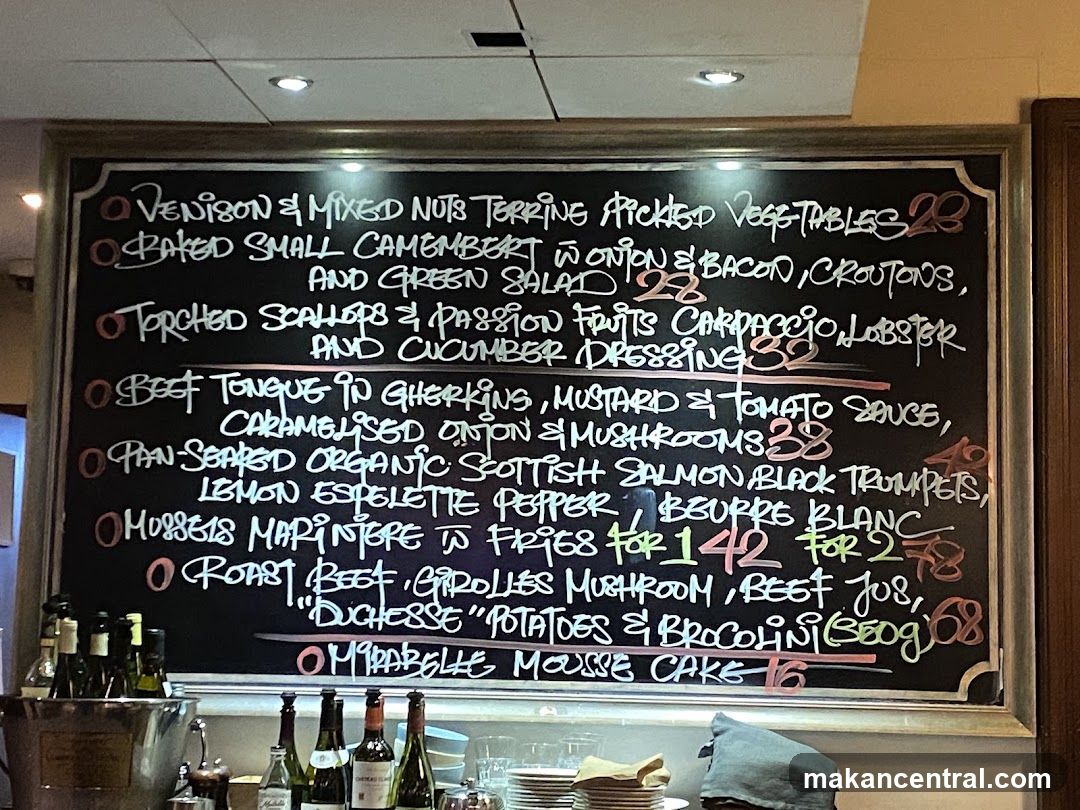 O VENISON & MIXED NUTS TERRINE, PICKLED VEGETABLES 28
O BAKED SMALL CAMEMBERT w̄ ONION & BACON, CROUTONS,
AND GREEN SALAD 28
O TORCHED SCALLOPS & PASSION FRUITS CARPACCIO, LOBSTER
AND CUCUMBER DRESSING 32
O BEEF TONGUE IN GHERKINS, MUSTARD & TOMATO SAUCE,
CARAMELISED ONION & MUSHROOMS 38
O PAN-SEARED ORGANIC SCOTTISH SALMON, BLACK TRUMPETS,
LEMON ESPELETTE PEPPER, BEURRE BLANC
O MUSSELS MARINIERE w̄ FRIES FOR 1 42 FOR 2 78
O ROAST BEEF, GIROLLES MUSHROOM, BEEF JUS,
"DUCHESSE" POTATOES & BROCOLINI 68
O MIRABELLE MOUSSE CAKE 16
makancentral.com